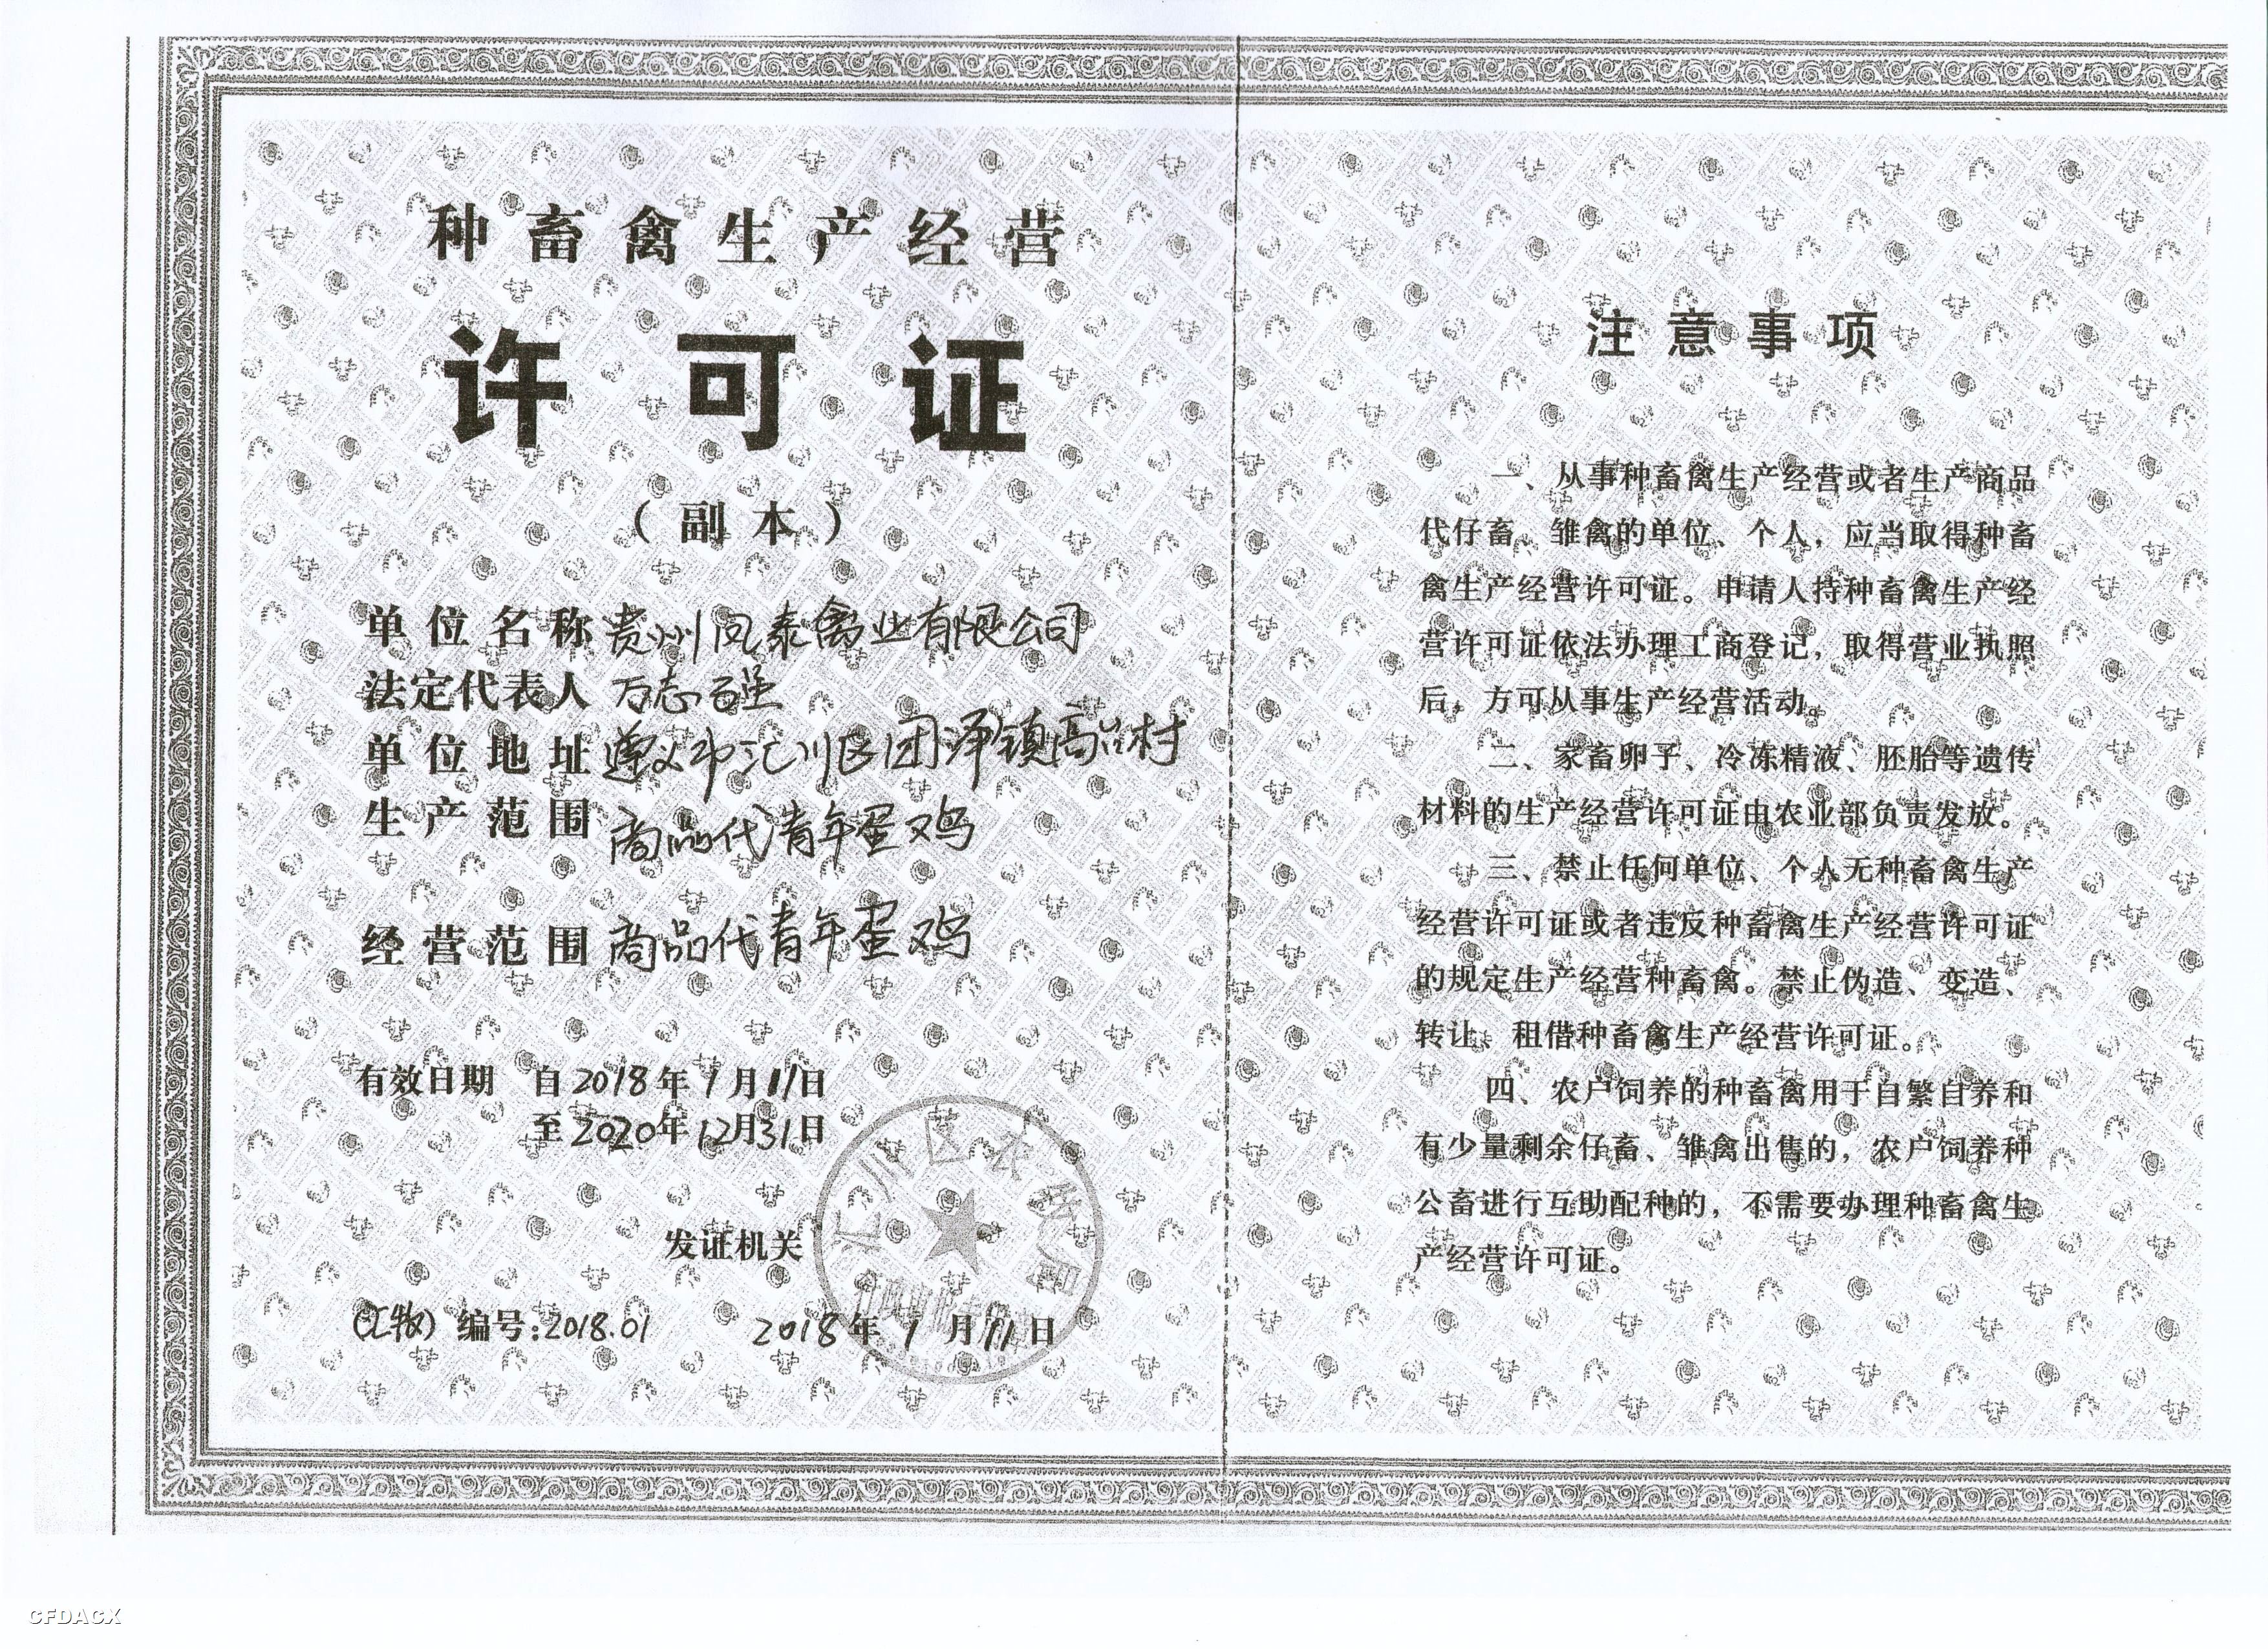 种畜禽生产经营
许可证
（副本）
单位名称 贵州凤泰禽业有限公司
法定代表人 万志
单位地址 遵义市汇川区团泽镇高岩村
生产范围 商品代青年蛋鸡
经营范围 商品代青年蛋鸡
有效日期 自2018年1月11日
至2020年12月31日
汇川区农牧局
发证机关
（汇牧）编号:2018.01
2018年1月11日
注意事项
一、从事种畜禽生产经营或者生产商品
代仔畜、雏禽的单位、个人，应当取得种畜
禽生产经营许可证。申请人持种畜禽生产经
营许可证依法办理工商登记，取得营业执照
后，方可从事生产经营活动。
二、家畜卵子、冷冻精液、胚胎等遗传
材料的生产经营许可证由农业部负责发放。
三、禁止任何单位、个人无种畜禽生产
经营许可证或者违反种畜禽生产经营许可证
的规定生产经营种畜禽。禁止伪造、变造、
转让、租借种畜禽生产经营许可证。
四、农户饲养的种畜禽用于自繁自养和
有少量剩余仔畜、雏禽出售的，农户饲养种
公畜进行互助配种的，不需要办理种畜禽生
产经营许可证。
CFDACX